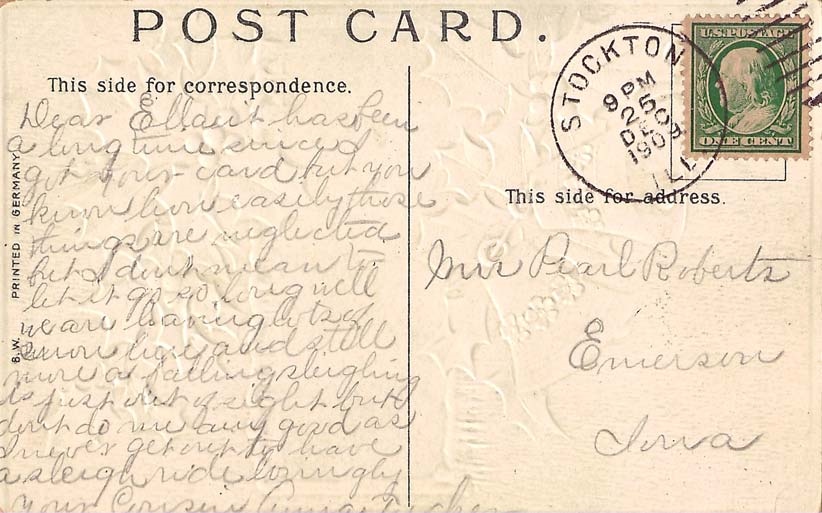 POST CARD.
This side for correspondence.
Dear Ella it has been
a long time since I
got your card but you
know how easily those
things are neglected
but I dont mean to
let it go so long well
we are having lots of
snow here and still
more a falling sleighing
is just out of sight but it
dont do me any good as
I never get out to have
a sleigh ride lovingly
your Cousin
B.W. PRINTED IN GERMANY
STOCKTON
9 PM
25
DEC
1909
ILL.
U.S. POSTAGE
ONE CENT
This side for address.
Mrs Pearl Roberts
Emerson
Iowa